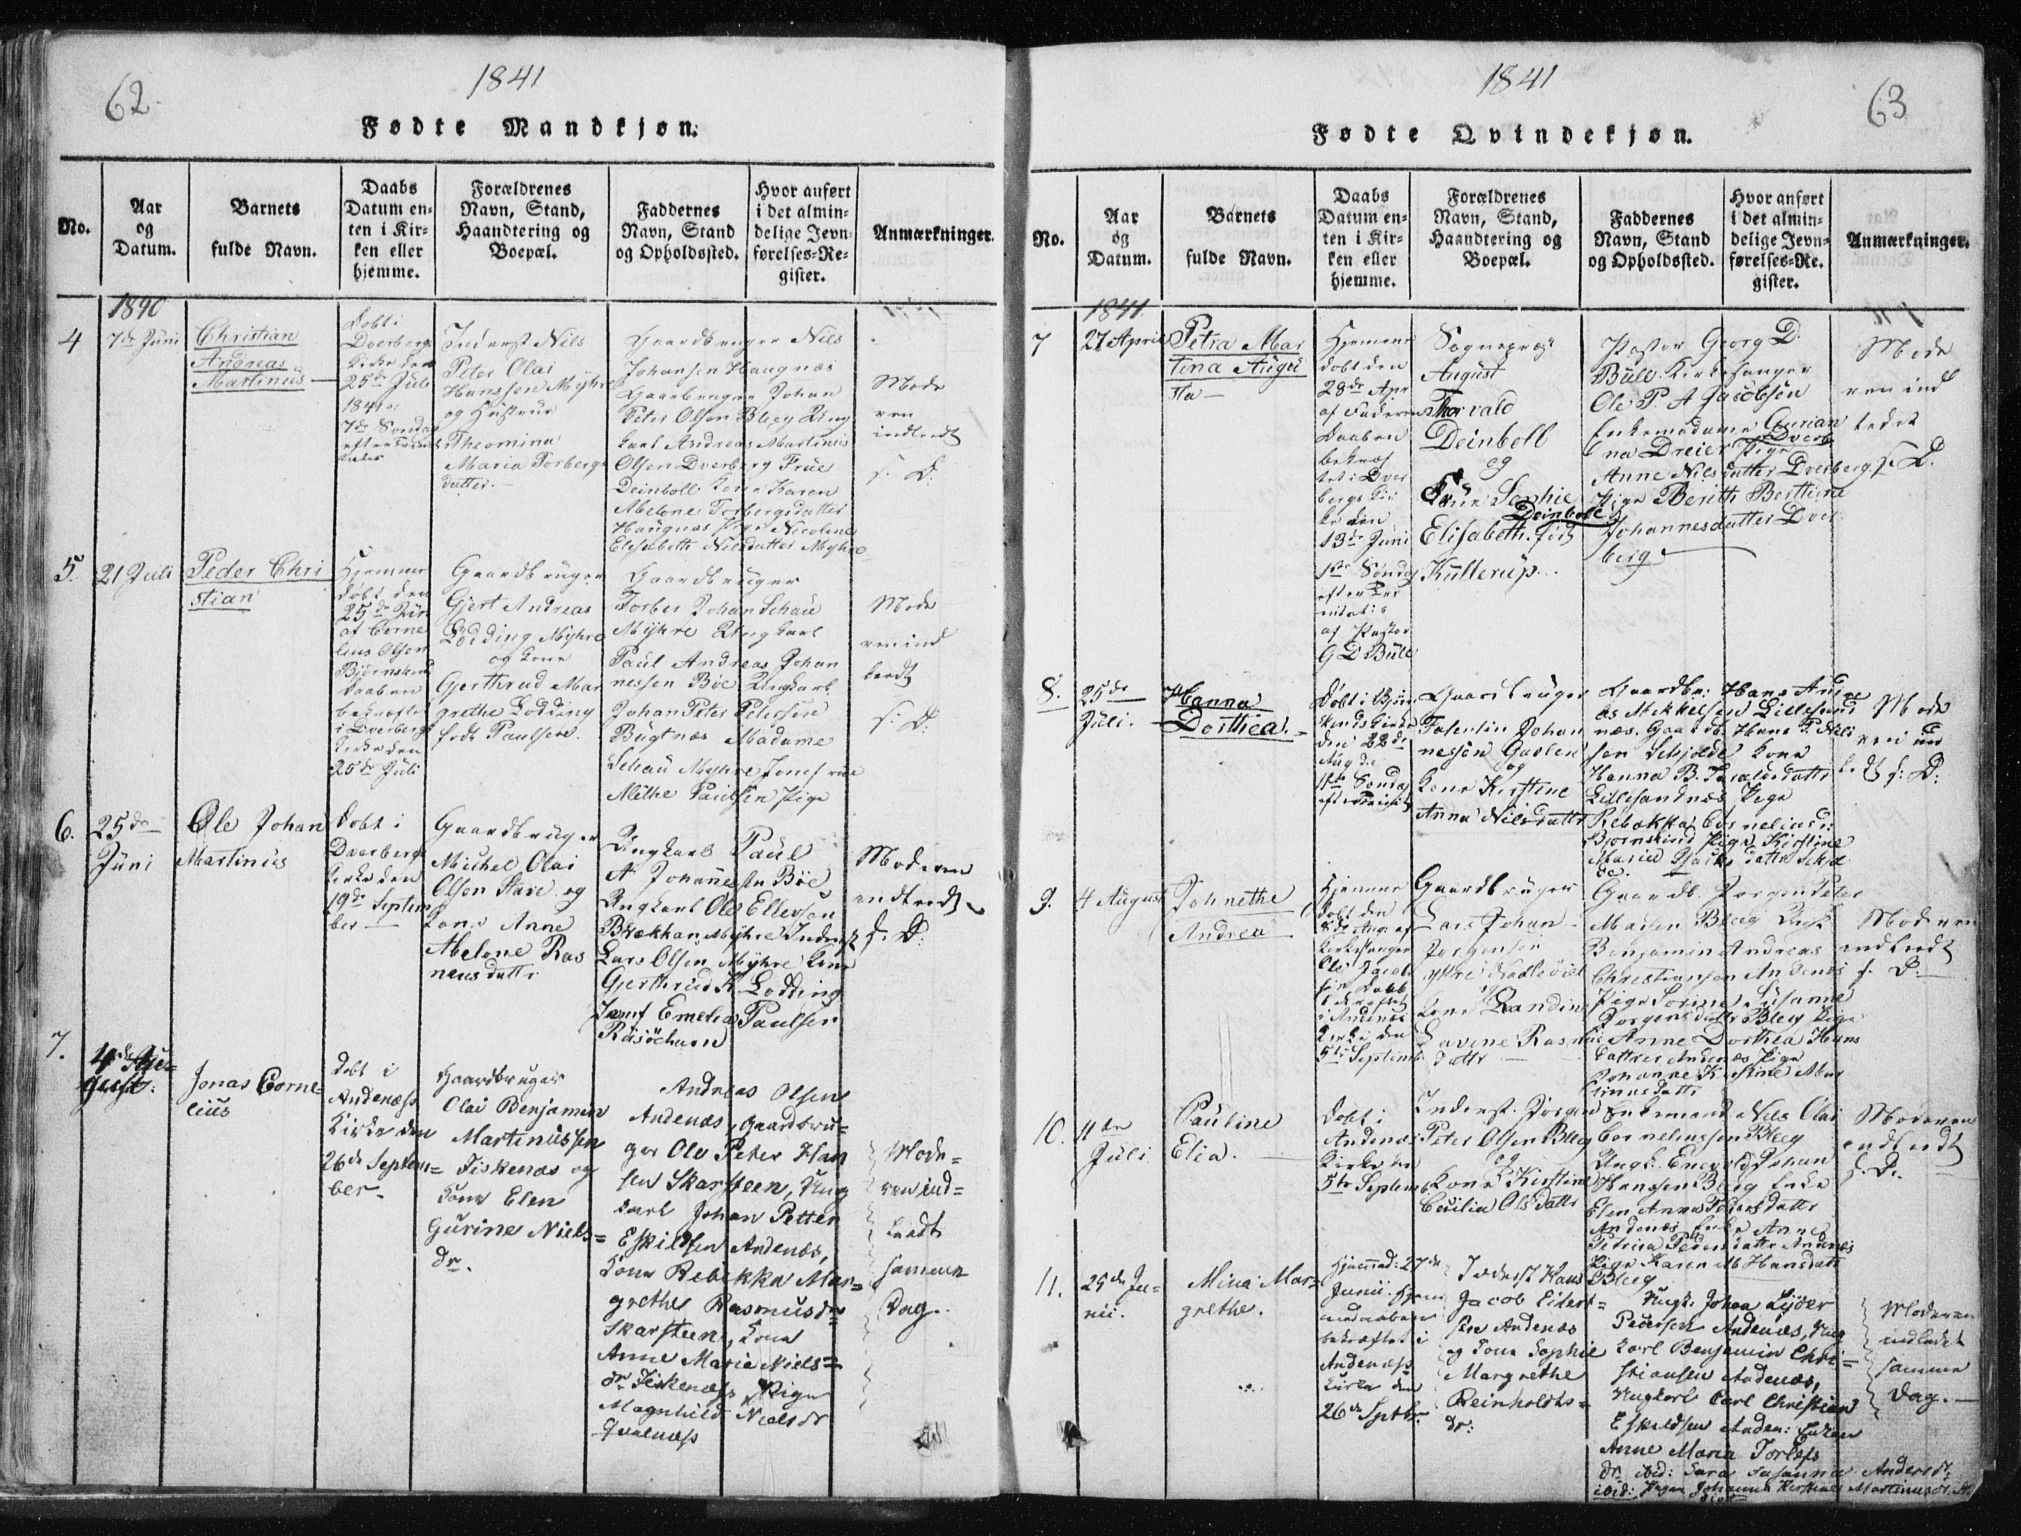 62
1841
Fødte Mandkjøn.
No.
Aar
og
Datum.
Barnets
fulde Navn.
Daabs
Datum en-
ten i Kir-
ken eller
hjemme.
Forældrenes
Navn, Stand,
Haandtering og
Boepæl.
Faddernes
Navn, Stand
og Opholdssted.
Hvor anført
i det almin-
delige Jevn-
førelses-Re-
gister.
Anmærkninger.
1840
4
7de Juni
Christian
Andreas
Martinus
Døbt i
Dverberg
Kirke den
25de Juli
1841
7de Søndag
Inderst Nils
Peter Olai
Hanssen Myhre
og Hustrue
Thomina
Maria Torbergs
datter.
Gaardbruger Nils
Johansen Haugnæs
Gaarbruger Johan
Peter Olsen Bleeg Ung
karl Andreas Martinus
Olsen Dverberg Frue
Deinboll Kone Karen
Abelone Torbergsdatter
Haugnæs Pige Nicoline
Elisabeth Nilsdatter Myhre
Mode
ren
indledt
s. D:
5.
21 Juli
Peder Chri
stian
Hjemme
døbt den
25de
af Corne
lius Olsen
Bjørnskind
Daaben
bekræftet
i Dverbergs
Kirke den
25de Juli
Gaardbruger
Gjert Andreas
Lodding Myhre
og Kone
Gjerthrud Mar
grethe Lodding
født Paulsen.
Gaardbruger
Torber Johan Schau
Myhre Ungkarl
Paul Andreas Johan
nessen Böe Ungkarl
Johan Peter Petersen
Bugtnæs Madame
Schau Myhre Jomfrue
Mithe Paulsen Pige
Mode
ren ind
ledt
s: D:
6.
25de
Juni
Ole Johan
Martinus
Døbt i
Dverberg
Kirke den
19de Septem
ber
Gaardbruger
Michel Olai
Olsen Stave og
Kone Anne
Abelone Ras
musdattr
Ungkarl Paul
A Johannessen Böe
Ungkarl Ole Ellevsen
Brækhan Myhre Inderst
Lars Olsen Myhre Kone
Gjerthrud K. Lodding
Jomf Emelia Paulsen
Risöehavn
Moderen
indledt
s. D:
7.
4de Au-
gust.
Jonas Corne-
lius
Døbt i
Andenæs
Kirke den
26de Septem-
ber.
Gaardbruger
Olai Benjamin
Martinussen
Fiskenæs og
Kone Elen
Gurine Niels-
dr.
Andreas Olsen
Andenæs, Gaardbru-
ger Ole Peter Han
sen Skarsteen, Ung
karl Johan Petter
Eskildsen Andenæs,
Kone Rebekka Mar-
grethe Rasmusdr
Skarsteen, Kone
Anne Marie Niels-
dr Fiskenæs Pige
Magnhild Nielsdr
Qvalnæs
Mode-
ren ind-
ledt
samme
Dag.
1841
63
Fødte Qvindekjøn.
No.
Aar
og
Datum.
Barnets
fulde Navn.
Daabs
Datum en-
ten i Kir-
ken eller
hjemme.
Forældrenes
Navn, Stand,
Haandtering og
Boepæl.
Faddernes
Navn, Stand
og Opholdssted.
Hvor anført
i det almin-
delige Jevn-
førelses-Re-
gister.
Anmærkninger.
1841
7
27 April
Petra Mar
tina Augu
sta
Hjemme
døbt den
28de Apr
af Faderen
Daaben
bekræf
tet i Dver
bergs Kir
ke den
13de Juni
1ste Søndag
efter Tri
nitatis
af Pastor
G D Bull
Sognepræst
August
Thorvald
Deinboll
og
Frue Sophie
Deinboll
Elisabeth. född
Kullerup.
Pastor Georg D.
Bull Kirkesanger
Ole P. A Jacobsen
Enkemadame Gurian
na Dreier Dverb Pige
Anne Nilsdatter Dverberg
Pige Berith Berthine
Johannesdatter Dver
berg
Mode
ren ind
ledet
s. D.
8.
25de
Juli.
Hanna
Dorthea.
Døbt i Björn
skinds Kirke
den 22de
Aug
11te Søndag
Gaardbruger
Johan
nessen Gavlen
og
Kone Kirstine
Anna Nilsdattr
Gaardbr: Hans Andre
as Mikkelsen Lillesand
næs. Gaardb. Hans P. Nils
sen Kone
Hanna B.
Lillesandnæs Pige
Rebækka Corneliusd:
Bjørnskind Pige Kirstine
Mode
ren ind
ledt s. D:
9.
4 August
Johnethe
Andrea
Hjemme
døbt den
8de Aug. af
Kirkesanger
Ole Jacob
sen Daab
bekræftet
i Andenæs
Kirke den
5te Septemb
Gaardbruger
Lars Johan
Jørgensen
og
Kone Randine
Lavine Rasmus
dattr
Gaardb. Jørgen Peter
Madsen Bleeg
Benjamin Andreas
Christiansen Andenæs
Pige Sorine Susanne
Jørgensdattr Bleeg Pige
Anne Dorthea Hans
datter Andenæs Pige
Johanne Kirstine Mar
tinusdattr
Moderen
indledt
s. D.
10.
11te
Juli
Pauline
Elia.
Døbt i
Andenæs
Kirke den
5te Septemb
Inderst. Jørgen
Peter Olsen Bleeg
og
Kone Kirstine
Cecilia Olsdattr
Enkemand Nils Olai
Corneliussen Bleeg
Ungk. Enevold Johan
Hanssen Bleeg Enke
Elen Anna Pedersdattr
Andenæs Enke Anne
Petrica Pedersdattr Andenæs
Pige Karen M Hansdattr
Bleeg
Moderen
indledt
s. D.
11.
25de Ju-
nii.
Mina Mar-
grethe.
Hjemmed: 27de
Junii.
bekræftet i
Andenæs
Kirke den
26de Septbr.
Inderst Hans
Jacob Eilert-
sen Andenæs
og Kone Sophie
Margrethe
Reinholdts-
dr:
Ungk: Johan Lyder
Pedersen Andenæs, Ung
karl Benjamin Chri-
stiansen Andenæs,
Ungkarl Carl Christian
Eskildsen Anden: Enken
Anne Maria Torlofs
dr ibid: Sara Susanna Andersdr
ibid: Pigen Johanna Kirstine Martinusdr
Moderen
indledet
samme
Dag.